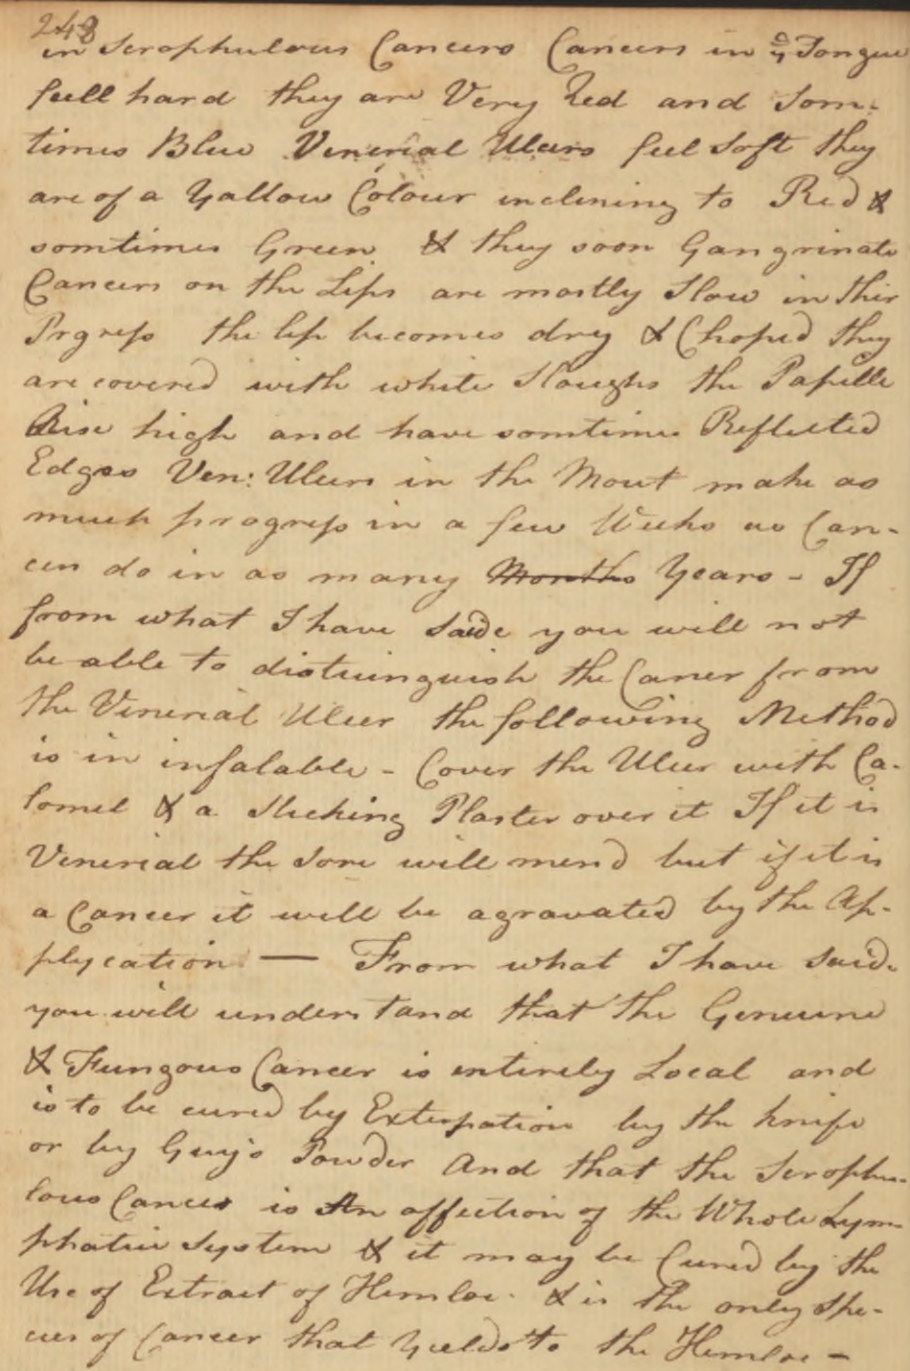 248
in Scrophulous Cancers Cancers in ye Tongue
feell hard they are Very Red and Som-
times Blue Venerial Ulcers feel Soft they
are of a Yallow Colour inclining to Red &
somtimes Green. & they soon Gangrinate
Cancers on the Lips are mostly Slow in thir
Prgress the lip becomes dry & Choped they
are covered with white Sloughs the Papelle
Rise high and have somtimes Reflected
Edges Ven: Ulcers in the Mout make as
much progress in a few Weeks as Can-
cers do in as many Months Years - If
from what I have saide you will not
be able to distuinguish the Cancer from
the Venerial Ulcer the following Method
is in infalable - Cover the Ulcer with Ca-
lomel & a Sticking Plaster over it If it is
Venerial the Sore will mend but if it is
a Cancer it will be agravated by the Ap-
plycation — From what I have said.
you will understand that the Genuine
& Fungous Cancer is entirely Local and
is to be cured by Exterpation by the knife
or by Guy's Powder And that the Scrophu-
lous Cancer is An affection of the Whole Lym-
phatic System & it may be Cured by the
Use of Extract of Hemloc. & is the only Spe-
cies of Cancer that Yields to the Hemloc -